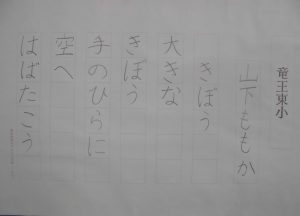 竜王東小
山下ももか
きぼう
大きな
きぼう
手のひらに
空へ
はばたこう